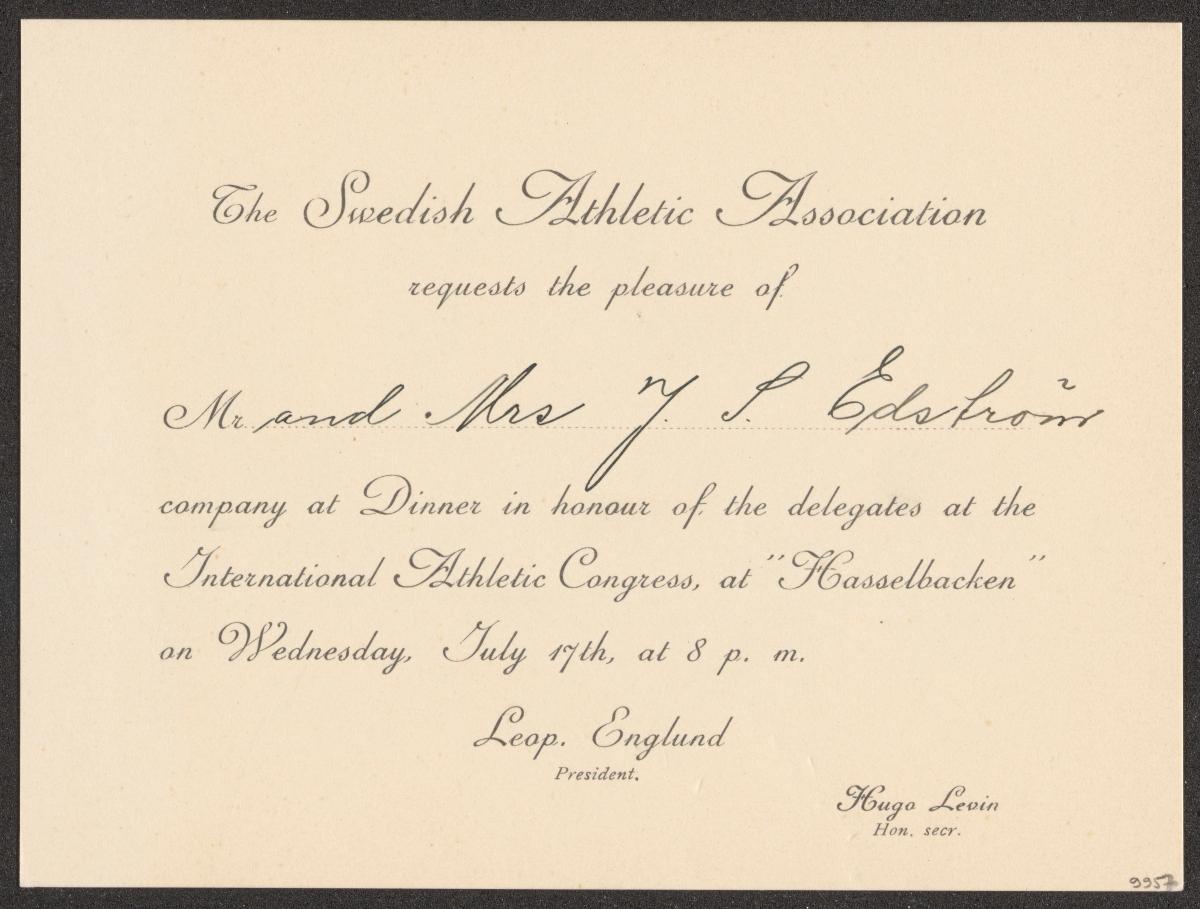 The Swedish Athletic Association
requests the pleasure of
Mr. and Mrs J. S. Edström
company at Dinner in honour of the delegates at the
International Athletic Congress, at "Hasselbacken"
on Wednesday, July 17th, at 8 p. m.
Leop. Englund
President.
Hugo Levin
Hon. secr.
9957